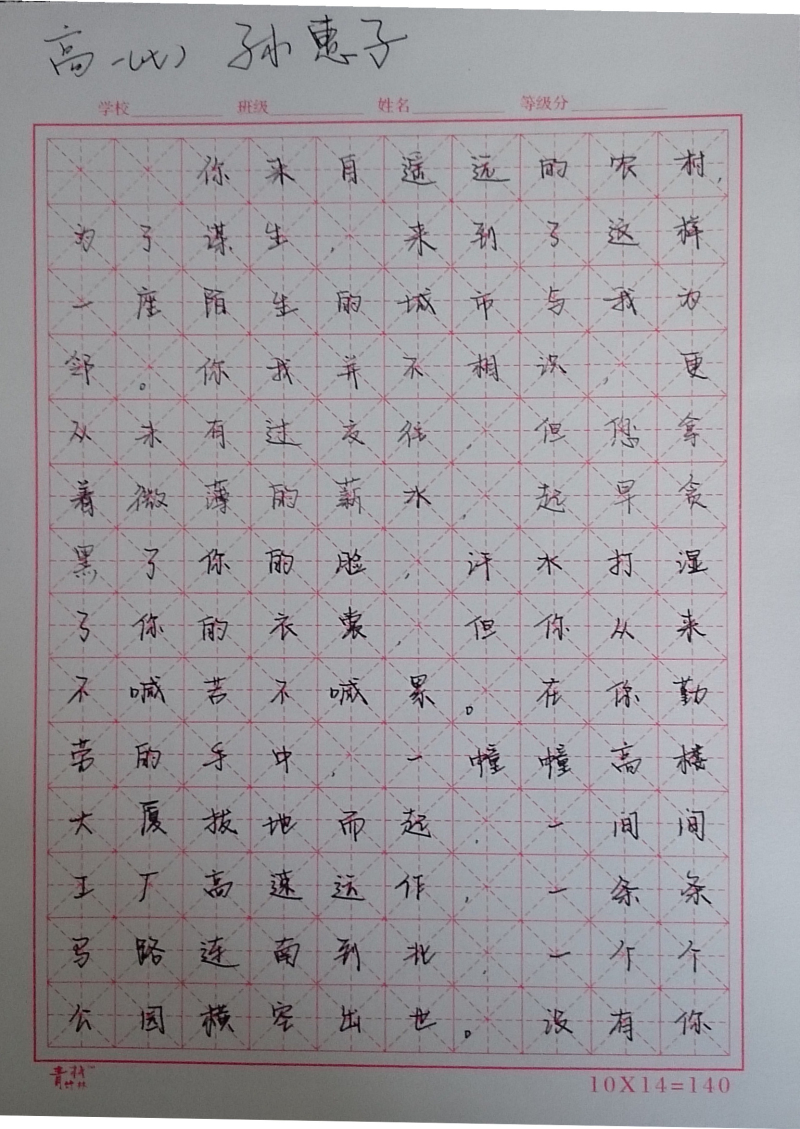 高一(七) 孙惠子
学校 班级 姓名 等级分
你来自遥远的农村,
为了谋生,来到了这样
一座陌生的城市与我为
邻。你我并不相识,更
从未有过交往,但您拿
着微薄的薪水,起早贪
黑了你的脸,汗水打湿
了你的衣裳,但你从来
不喊苦不喊累。在你勤
劳的手中,一幢幢高楼
大厦拔地而起,一间间
工厂高速运作,一条条
马路连南到北,一个个
公园横空出世。没有你
青竹林
10X14=140